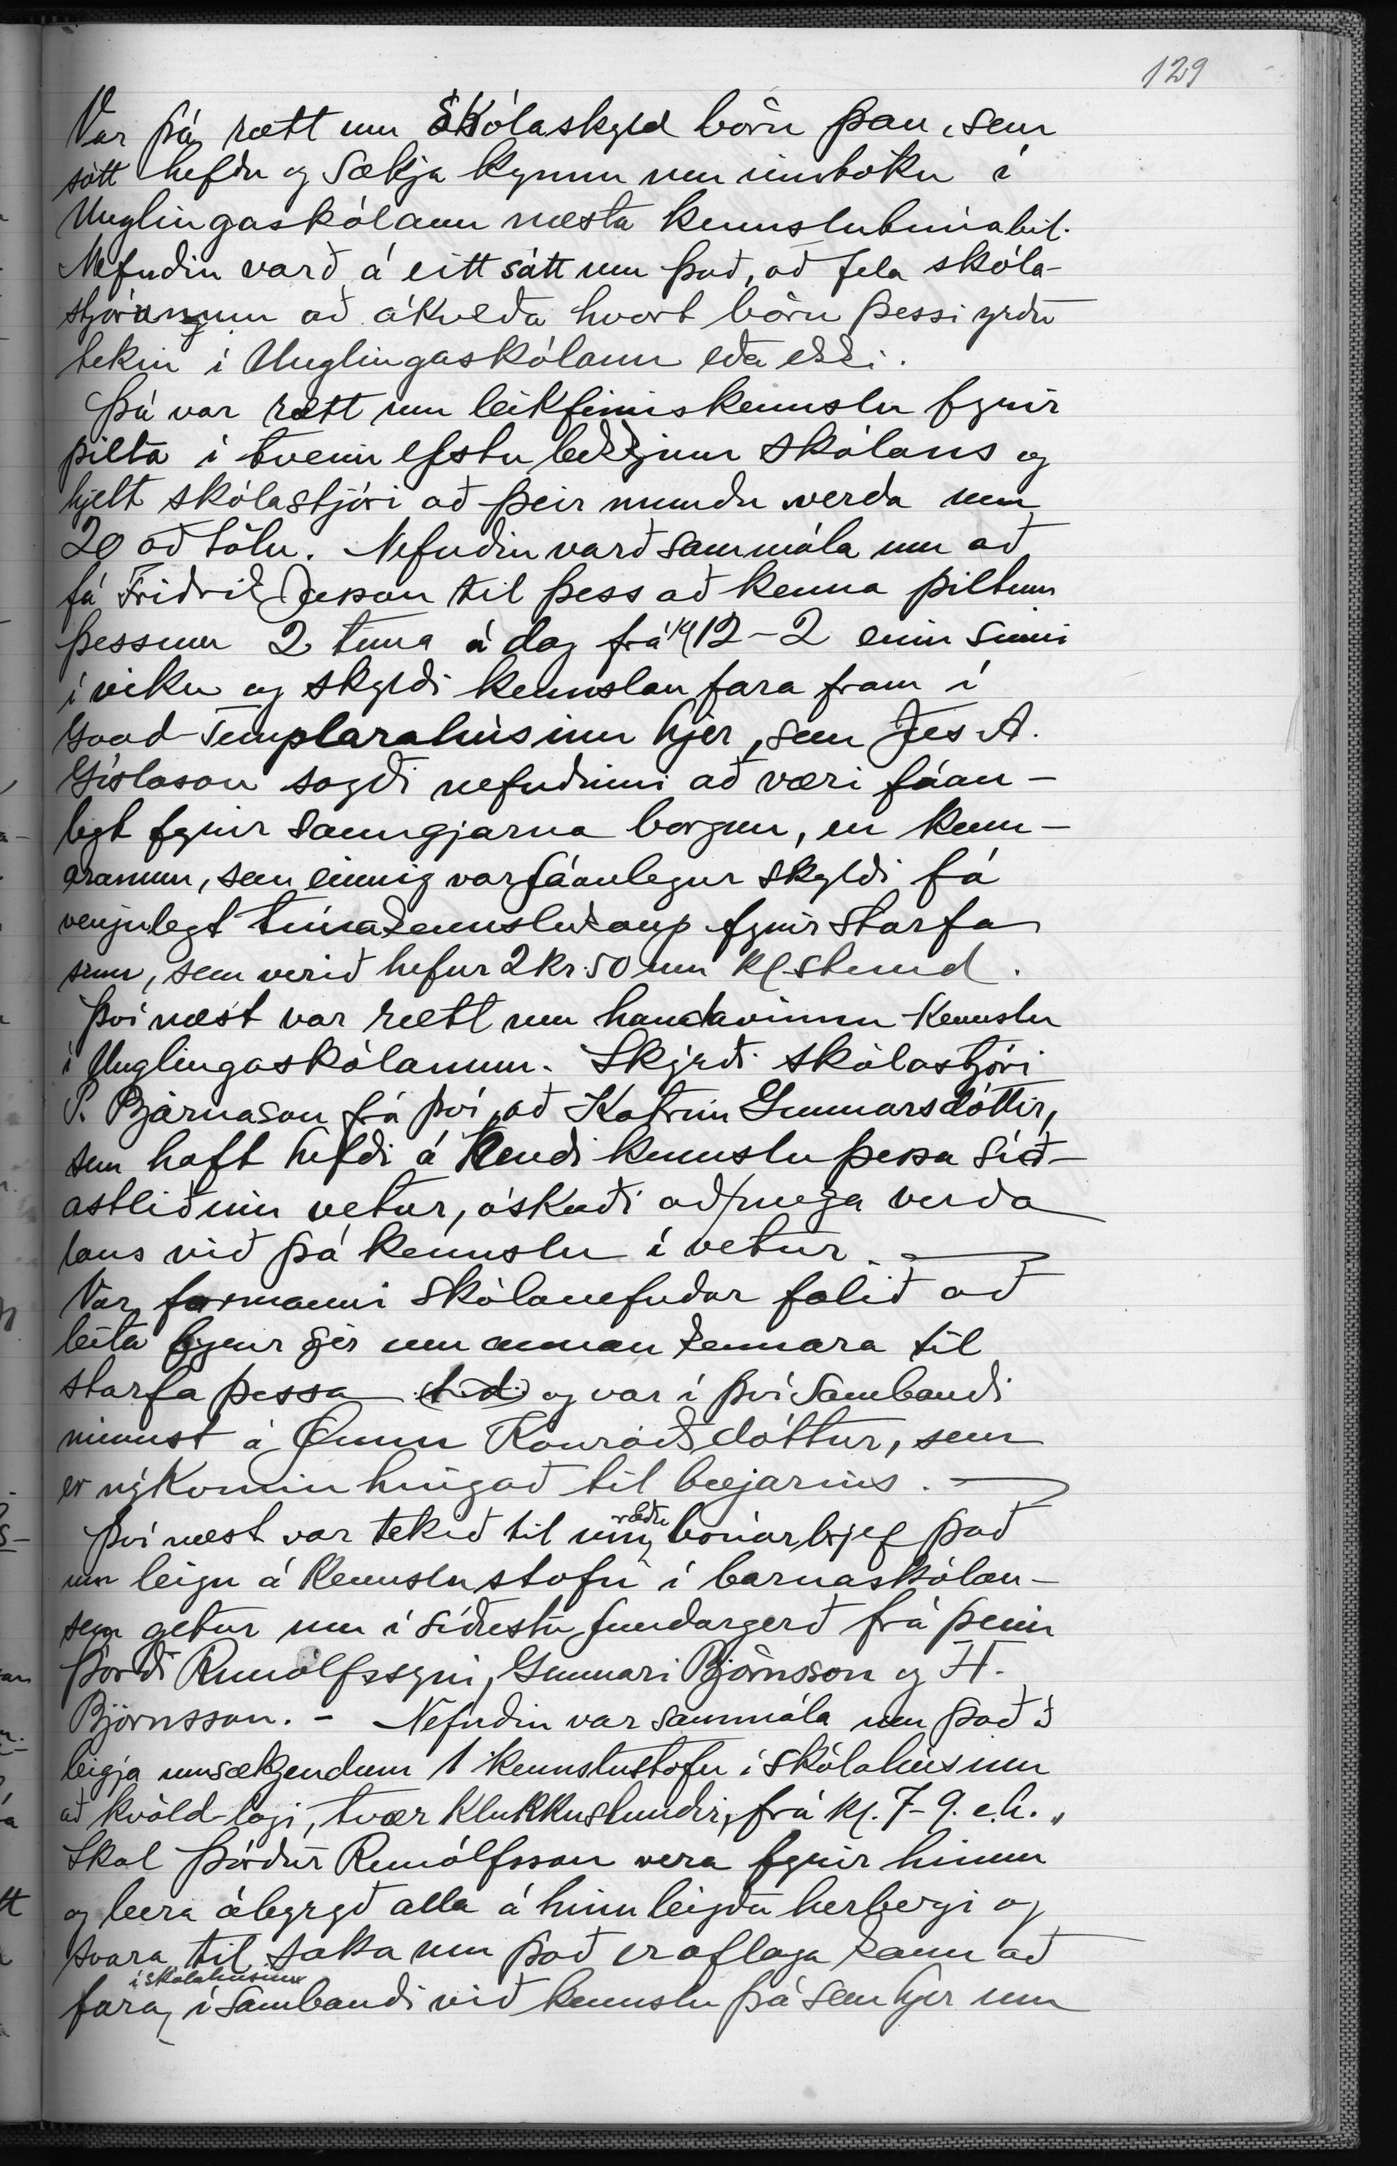 129
Var þá rætt um skólaskyld börn þau, sem
sótt hefðu og sækja kynnu um inntöku í
Unglingaskólann næsta kennslutímabil.
Nefndin varð á eitt sátt um það, að fela skóla-
stjóranum að ákveða hvort börn þessi yrðu
tekin í Unglingaskólann eða ekki.
Þá var rætt um leikfimiskennslu fyrir
pilta í tveim efstu bekkjum skólans og
hjelt skólastjóri að þeir mundu verða um
20 að tölu. Nefndin varð sammála um að
fá Friðrik Jesson til þess að kenna piltum
þessum 2 tíma á dag frá kl 12-2 einu sinni
í viku og skyldi kennslan fara fram í
Good-Templarahúsinu hjer, sem Jes A.
Gíslason sagði nefndinni að væri fáan-
legt fyrir sanngjarna borgun, en kenn-
aranum, sem einnig var fáanlegur skyldi fá
venjulegt tímakennslukaup fyrir starfa
sinn, sem verið hefur 2 kr. 50 um kl.stund.
Því næst var rætt um handavinnu-kennslu
í Unglingaskólanum. Skýrði skólastjóri
P. Bjarnason frá því, að Katrín Gunnarsdóttir,
sem haft hefði á hendi kennslu þessa síð-
astliðinn vetur, óskaði að mega verða
laus við þá kennslu í vetur.
Var formanni skólanefndar falið að
leita fyrir sjer um annan kennara til
starfa þessa og var í því sambandi
minnst á Konráðsdóttur, sem
er nýkomin hingað til bæjarins.
Því næst var tekið til umræðu bónarbrjef það
um leigu á kennslustofu í barnaskólan-
sem getur um í síðustu fundargerð frá þeim
Þórði Runólfssyni, Gunnari Björnsson og H.
Björnsson. - Nefndin var sammála um það að
leigja umsækjendum 1 kennslustofu í skólahúsinu
að kvöld-lagi, tvær klukkustundir, frá kl. 7-9. e.h.,
Skal Þórður Runólfsson vera fyrir hinum
og bera ábyrgð alla á hinu leigða herbergi og
svara til saka um það er aflaga kann að
fara í skólahúsinu í sambandi við kennslu þá sem hjer um